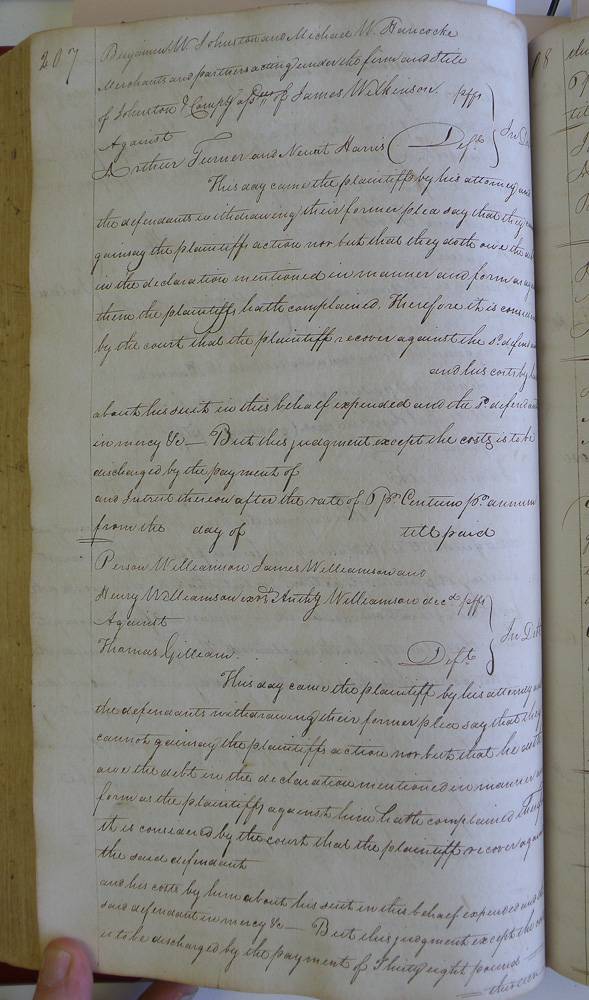 207
Benjamin W. Johnston and Michael W. Hancocke
Merchants and partners acting under the firm and stile
of Johnston & Compy of James Wilkinson plffs
Against
In De
Arthur Turner and Newit Harris Defts
This day came the plaintiffs by his attorney and
the defendants withdrawing their former plea say that they
gainsay the plaintiffs action nor but that they doth owe the
in the declaration mentioned in manner and form as
them the plaintiffs hath complained. Therefore it is
by the court that the plaintiff recover against the sd. defend
and his costs by
about his suit in this behalf expended and the sd. defend
in mercy &c — But this judgment except the costs is to be
discharged by the payment of
and Intrest thereon after the rate of 6 pr. Centum pr. annum
from the day of till paid
Person Williamson James Williamson and
Henry Williamson exrs. Anthy Williamson decd. plffs
Against
In Debt
Thomas Gilliam Deft.
This day came the plaintiff by his attorney
the defendants withdrawing their former plea say that they
cannot gainsay the plaintiffs action nor but that he doth
owe the debt in the declaration mentioned in manner
form as the plaintiffs against him hath complained
it is considered by the court that the plaintiff recover again
the said defendant
and his costs by him about his suit in this behalf expended and
said defendant in mercy &c — But this judgment except the
is to be discharged by the payment of Thirty eight pounds